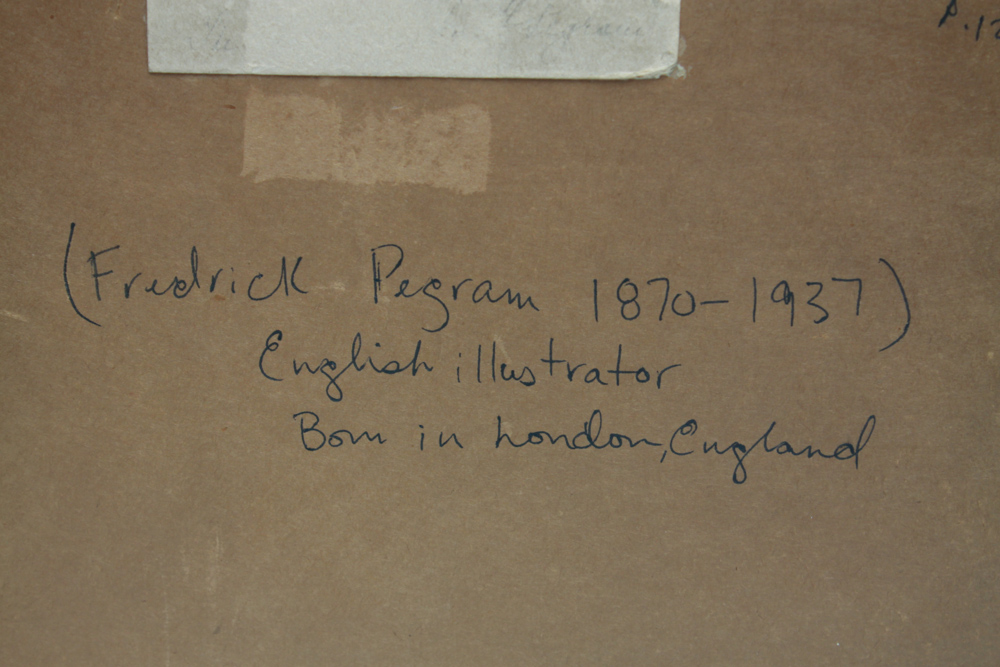 P.12
(Fredrick Pegram 1870-1937)
English illustrator
Born in London, England